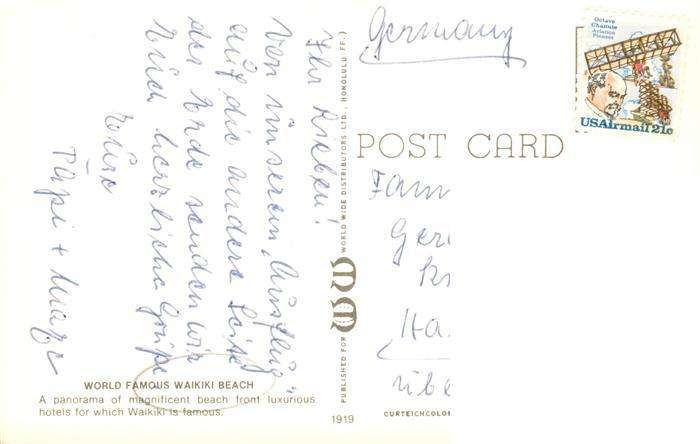 Ihr Lieben!
Von unserem „Ausflug"
auf die andere Seite
der Erde senden wir
Euch herzliche Grüße
Eure
Papi +
WORLD FAMOUS WAIKIKI BEACH
A panorama of magnificent beach front luxurious
hotels for which Waikiki is famous.
PUBLISHED FOR WORLD WIDE DISTRIBUTORS LTD., HONOLULU
1919
Germany
Octave
Chanute
Aviation
Pioneer
USAirmail 21c
POST CARD
Fam
CURTEICHCOLO